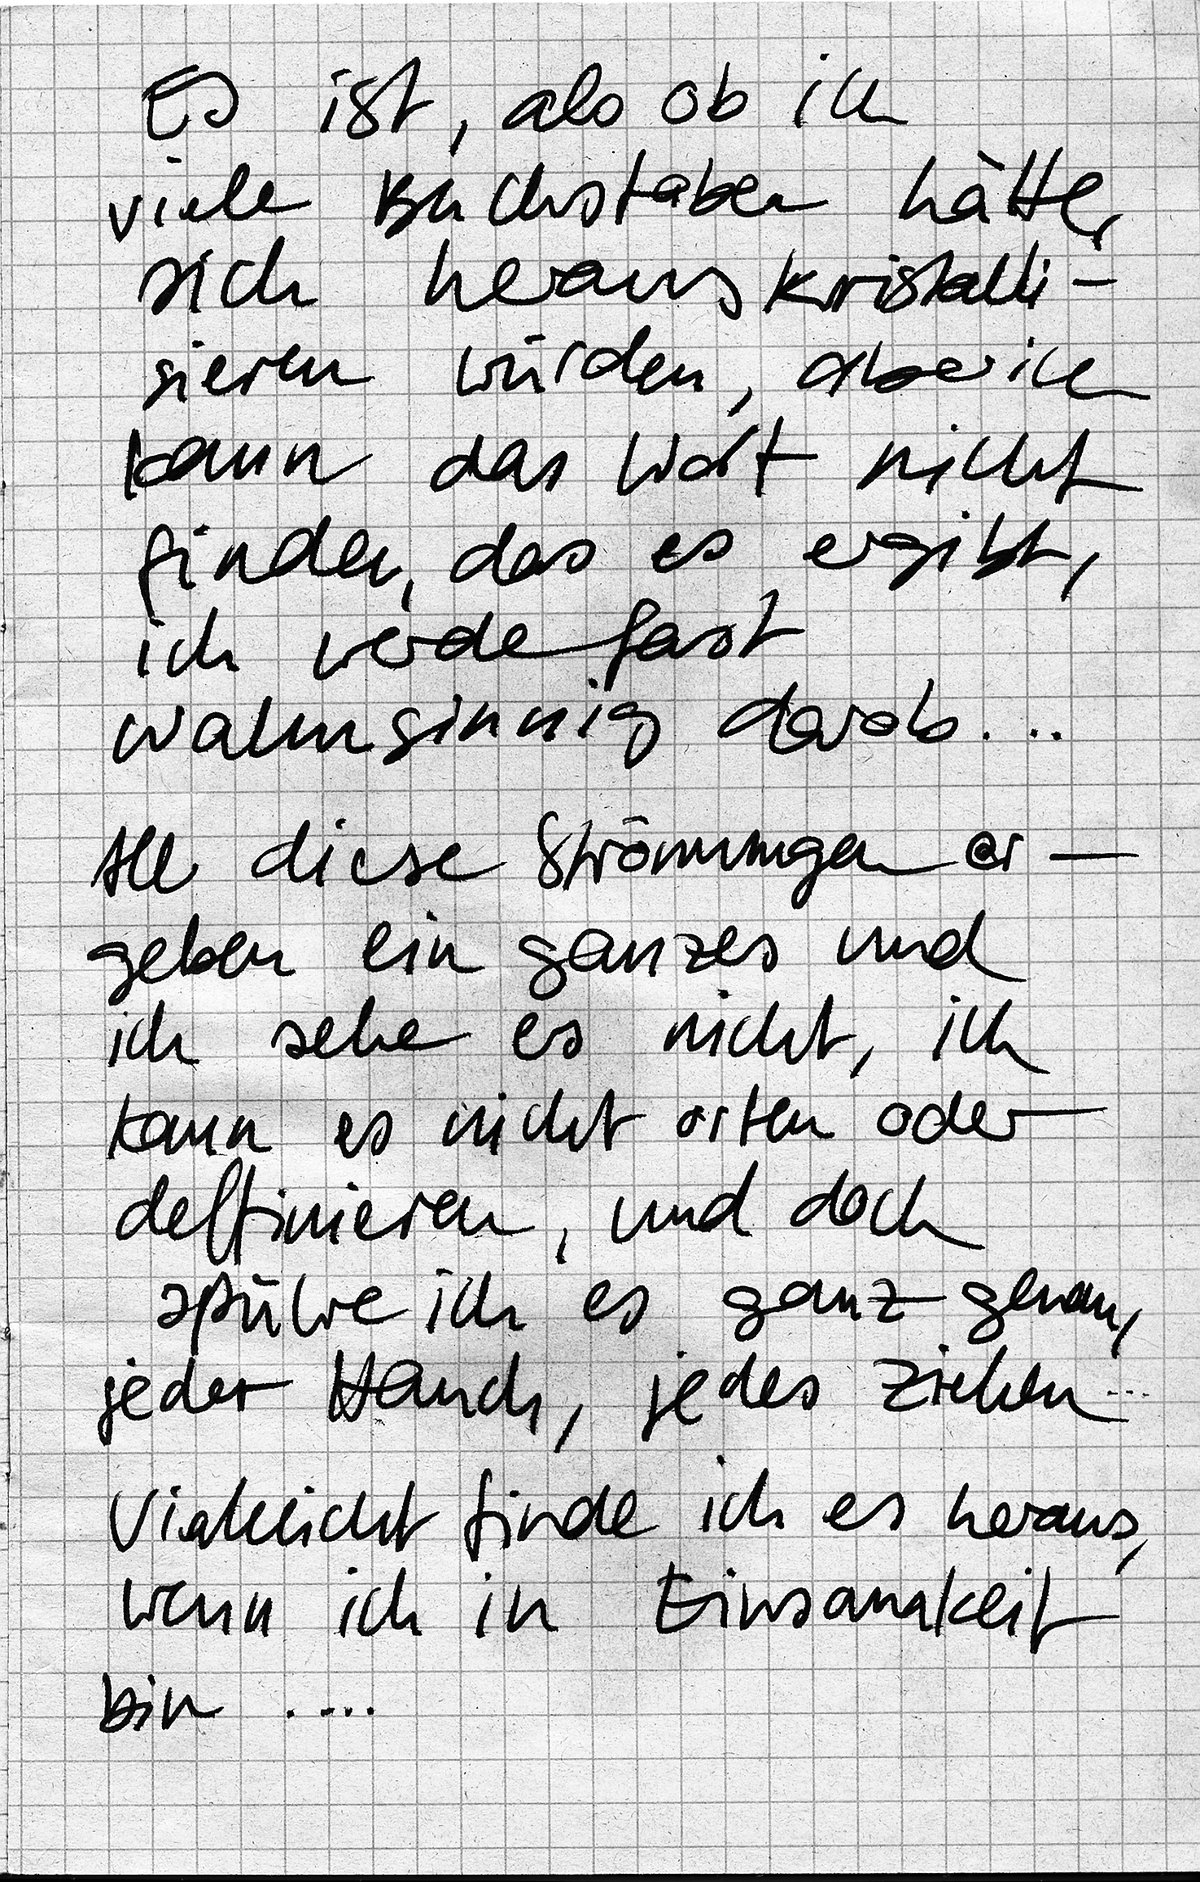 Es ist, als ob ich
viele Buchstaben hätte,
sich herauskristalli-
sieren würden, aber ich
kann das Wort nicht
finden, das es ergibt,
ich werde fast
wahnsinnig darob...
All diese Strömungen er-
geben ein ganzes und
ich sehe es nicht, ich
kann es nicht orten oder
definieren, und doch
spühre ich es ganz genau,
jeder Hauch, jedes Ziehen...
Vielleicht finde ich es heraus,
wenn ich in Einsamkeit
bin ....